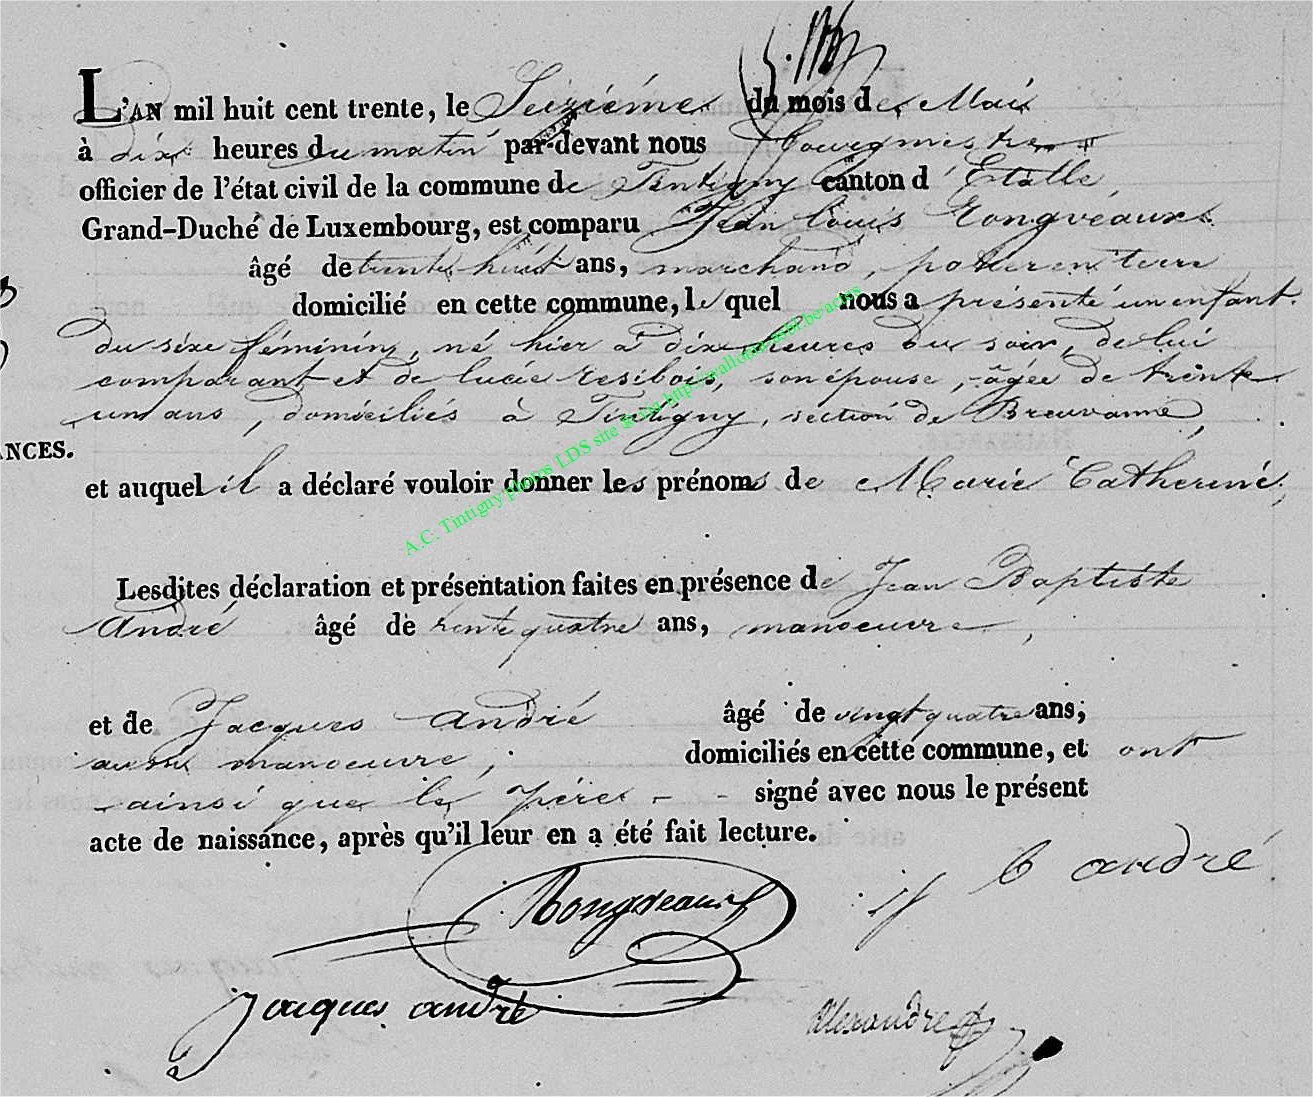 L'AN mil huit cent trente, le Seizième du mois de Mai
à dix heures du matin par-devant nous Bourgmestre
officier de l'état civil de la commune de Tintigny canton d'Etalle,
Grand-Duché de Luxembourg, est comparu Jean Louis Rongveaux
âgé de trente huit ans, marchand,
domicilié en cette commune, le quel nous a présenté un enfant
du sexe féminin, né hier à dix heures du soir, de lui
comparant et de lucie resibois, son épouse, âgée de trente
un ans, domiciliés à Tintigny, section de Breuvanne,
ANCES.
et auquel il a déclaré vouloir donner les prénoms de Marie Catherine,
A.C. Tintigny photos LDS site
Lesdites déclaration et présentation faites en présence de Jean Baptiste
André âgé de trente quatre ans, manoeuvre,
et de Jacques André âgé de vingt quatre ans,
aussi manoeuvre, domiciliés en cette commune, et ont
ainsi que le père - - signé avec nous le présent
acte de naissance, après qu'il leur en a été fait lecture.
j b andré
Rongveaux
jacques andré
Alexandre